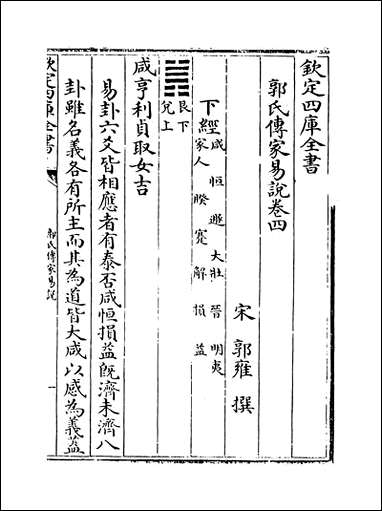 欽定四庫全書
郭氏傳家易說卷四
宋 郭雍 撰
下經
咸 恒 遯 大壯 晉 明夷
家人 睽 蹇 解 損 益
艮下
兌上
咸亨利貞取女吉
易卦六爻皆相應者有泰否咸恒損益既濟未濟八
卦雖名義各有所主而其為道皆大咸以感為義蓋
欽定四庫全書
郭氏傳家易說
一